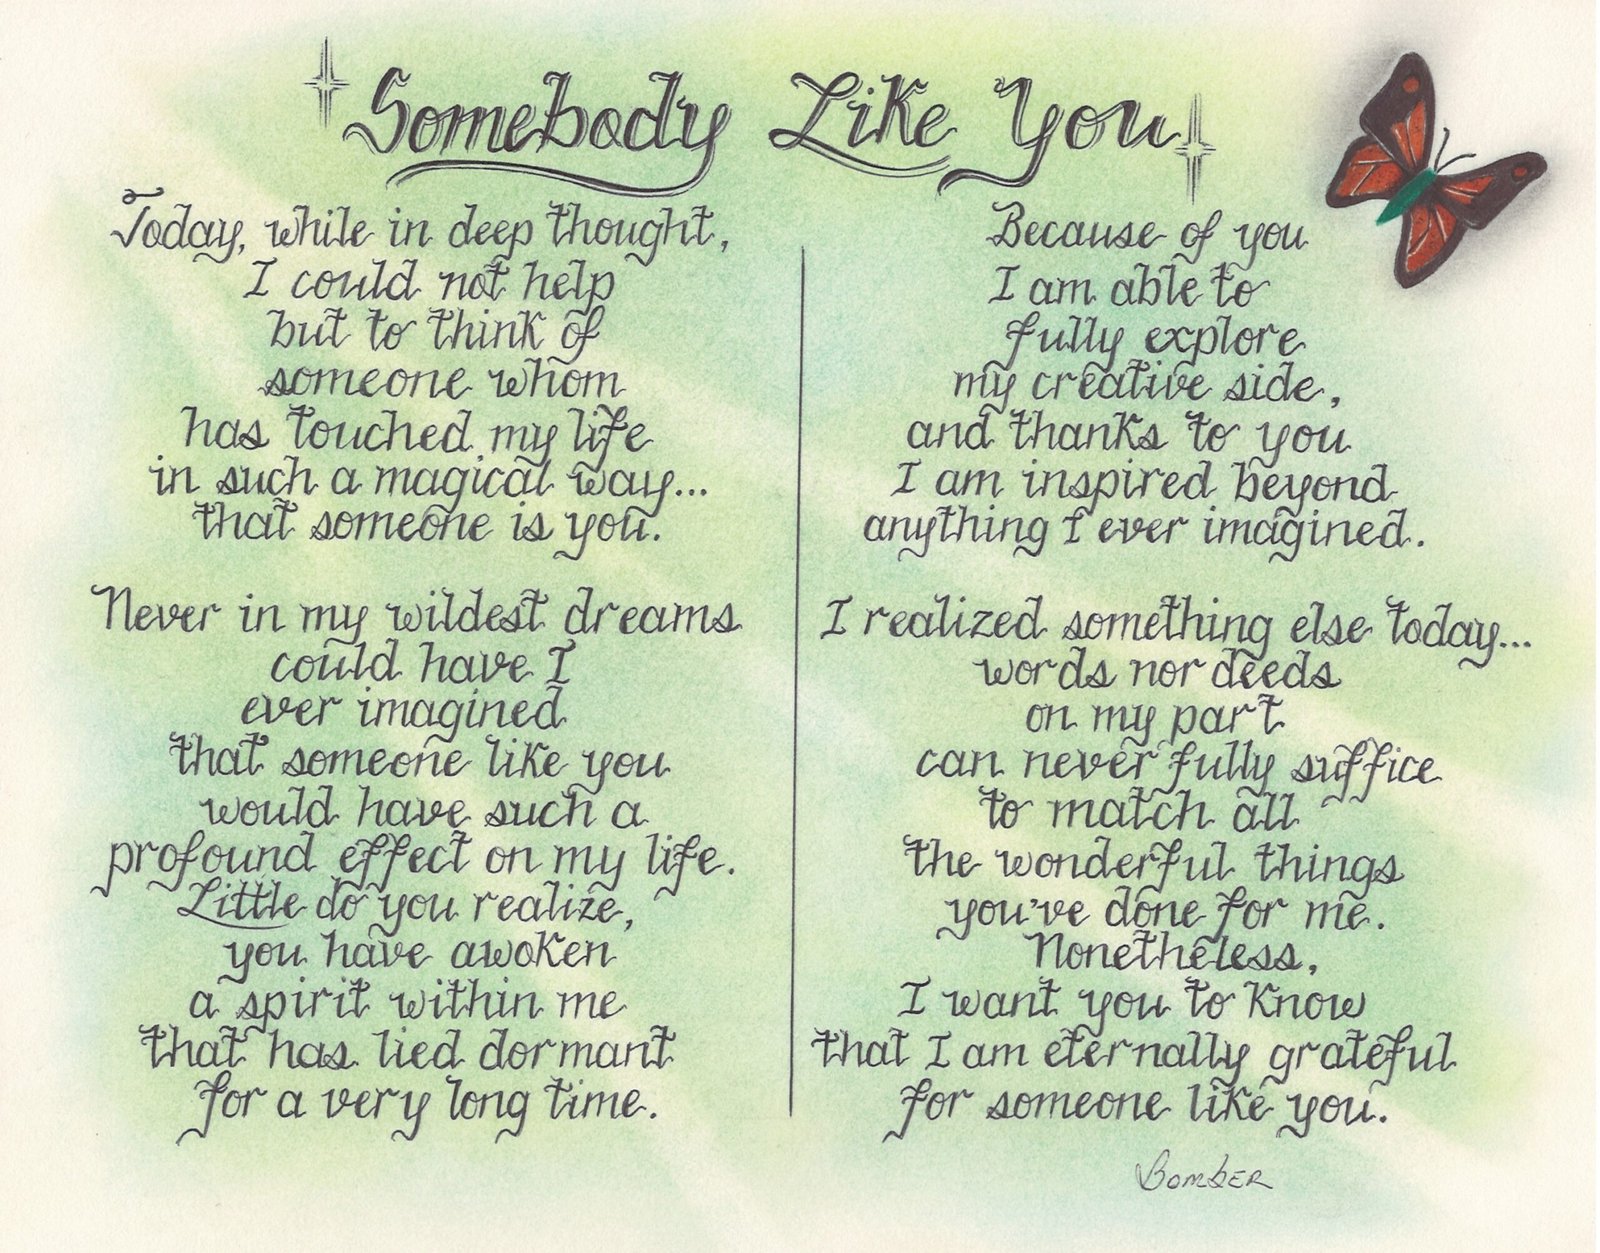 Somebody Like You
Today, while in deep thought,
I could not help
but to think of
someone whom
has touched my life
in such a magical way...
that someone is you.
Never in my wildest dreams
could have I
ever imagined
that someone like you
would have such a
profound effect on my life.
Little do you realize,
you have awoken
a spirit within me
that has lied dormant
for a very long time.
Because of you
I am able to
fully explore
my creative side,
and thanks to you
I am inspired beyond
anything I ever imagined.
I realized something else today...
words nor deeds
on my part
can never fully suffice
to match all
the wonderful things
you've done for me.
Nonetheless,
I want you to know
that I am eternally grateful
for someone like you.
Bomber